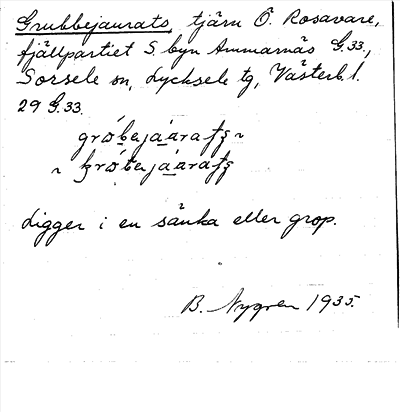 Grubbejaurats, tjärn Ö. Rosavare,
fjällpartiet S. byn Ammarnäs G.33,
Sorsele sn, Lycksele tg, Västerb. l.
29 G.33.
Ligger i en sänka eller grop.
B. Nygren 1935.